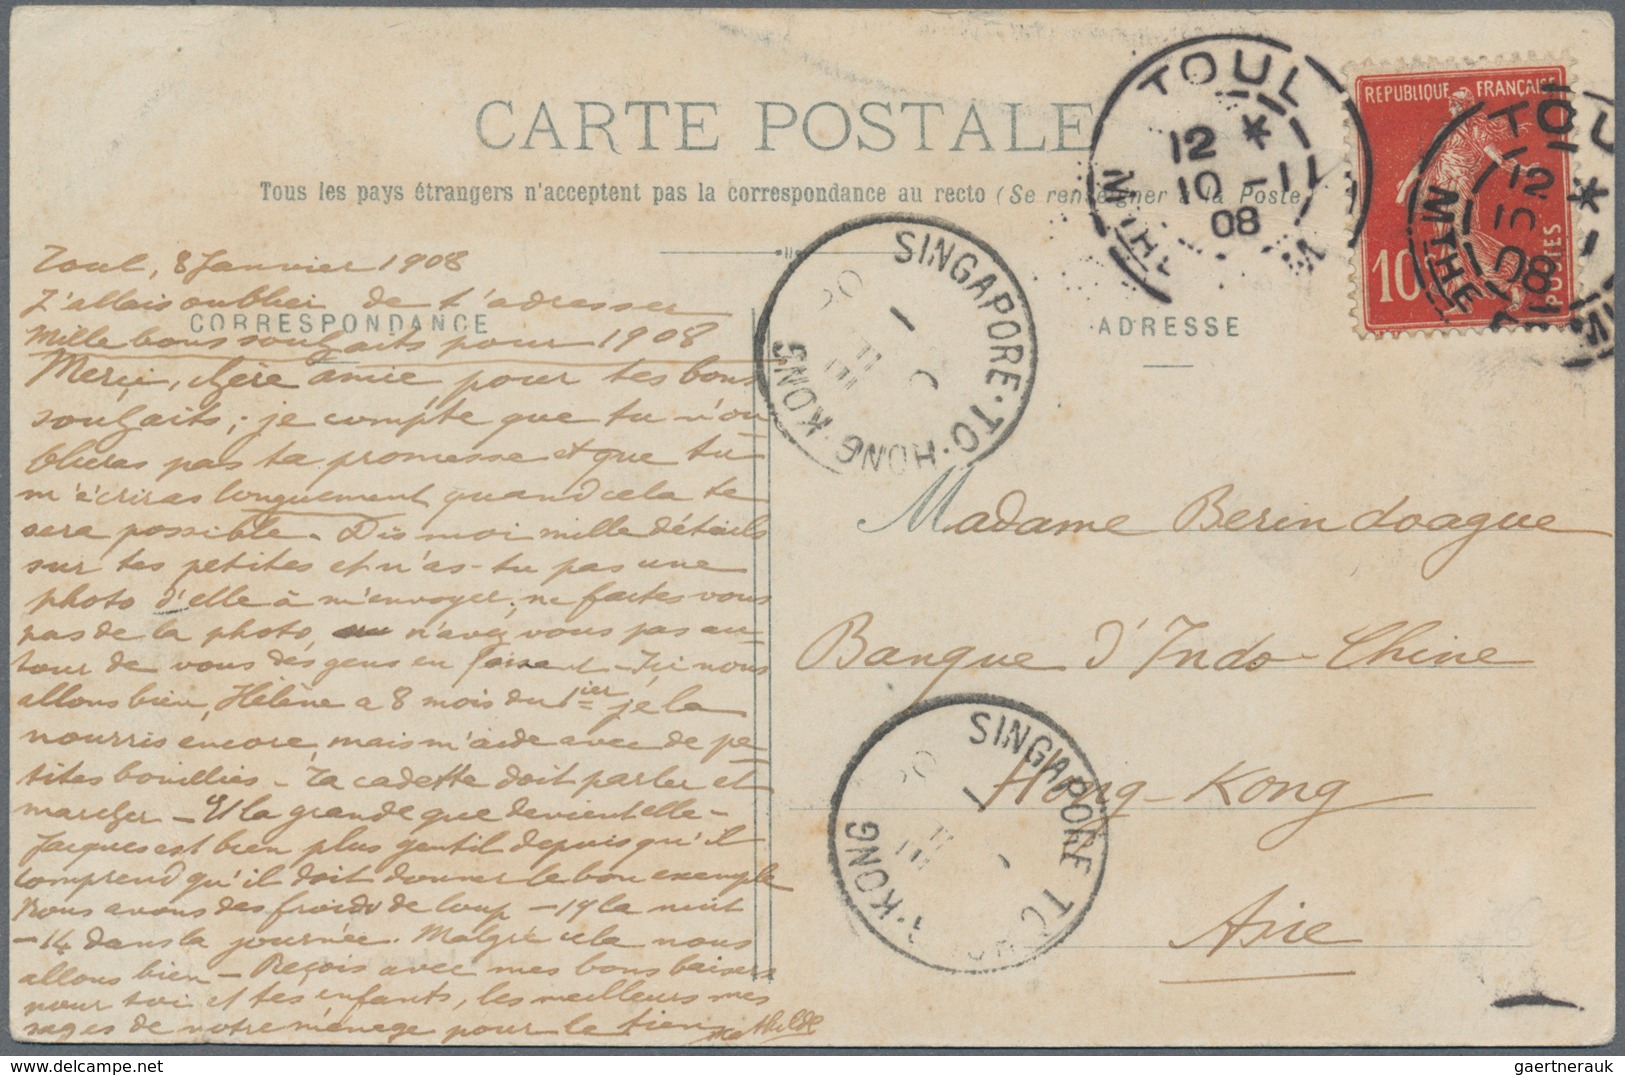 CARTE POSTALE
Tous les pays étrangers n'acceptent pas la correspondance au recto (Se renseigner à la Poste
CORRESPONDANCE
ADRESSE
REPUBLIQUE FRANÇAISE
10
POSTES
TOUL
12 *
10 - 1
08
TOUL
08
SINGAPORE · TO · HONG · KONG
SINGAPORE TO KONG
Toul, 8 Janvier 1908
J'allais oublier de t'adresser
Mille bons souhaits pour 1908
Merci, chère amie pour tes bons
souhaits; je compte que tu n'ou
blieras pas ta promesse et que tu
m'écriras longuement quand cela te
sera possible. Dis moi mille détails
sur tes petites et n'as-tu pas une
photo d'elle à m'envoyer, ne faites vous
pas de la photo, n'avez vous pas au-
tour de vous des gens en faisant - Ici nous
allons bien, Hélène a 8 mois du 1ier, je la
nourris encore, mais m'aide avec de pe
tites bouillies - Ta cadette doit parler et
marcher - Et la grande que devient elle -
Jacques est bien plus gentil depuis qu'il
comprend qu'il doit donner le bon exemple
Nous avons des froids de loup - 19 la nuit
- 14 dans la journée. Malgré cela nous
allons bien - Reçois avec mes bons baisers
pour toi et tes enfants, les meilleurs mes
sages de notre ménage pour le tien
Mathilde
Madame Berindoague
Banque d'Indo-Chine
Hong-Kong
Asie
gaertnerauk